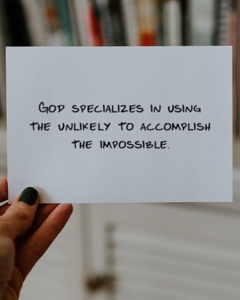 GOD SPECIALIZES IN USING
THE UNLIKELY TO ACCOMPLISH
THE IMPOSSIBLE.